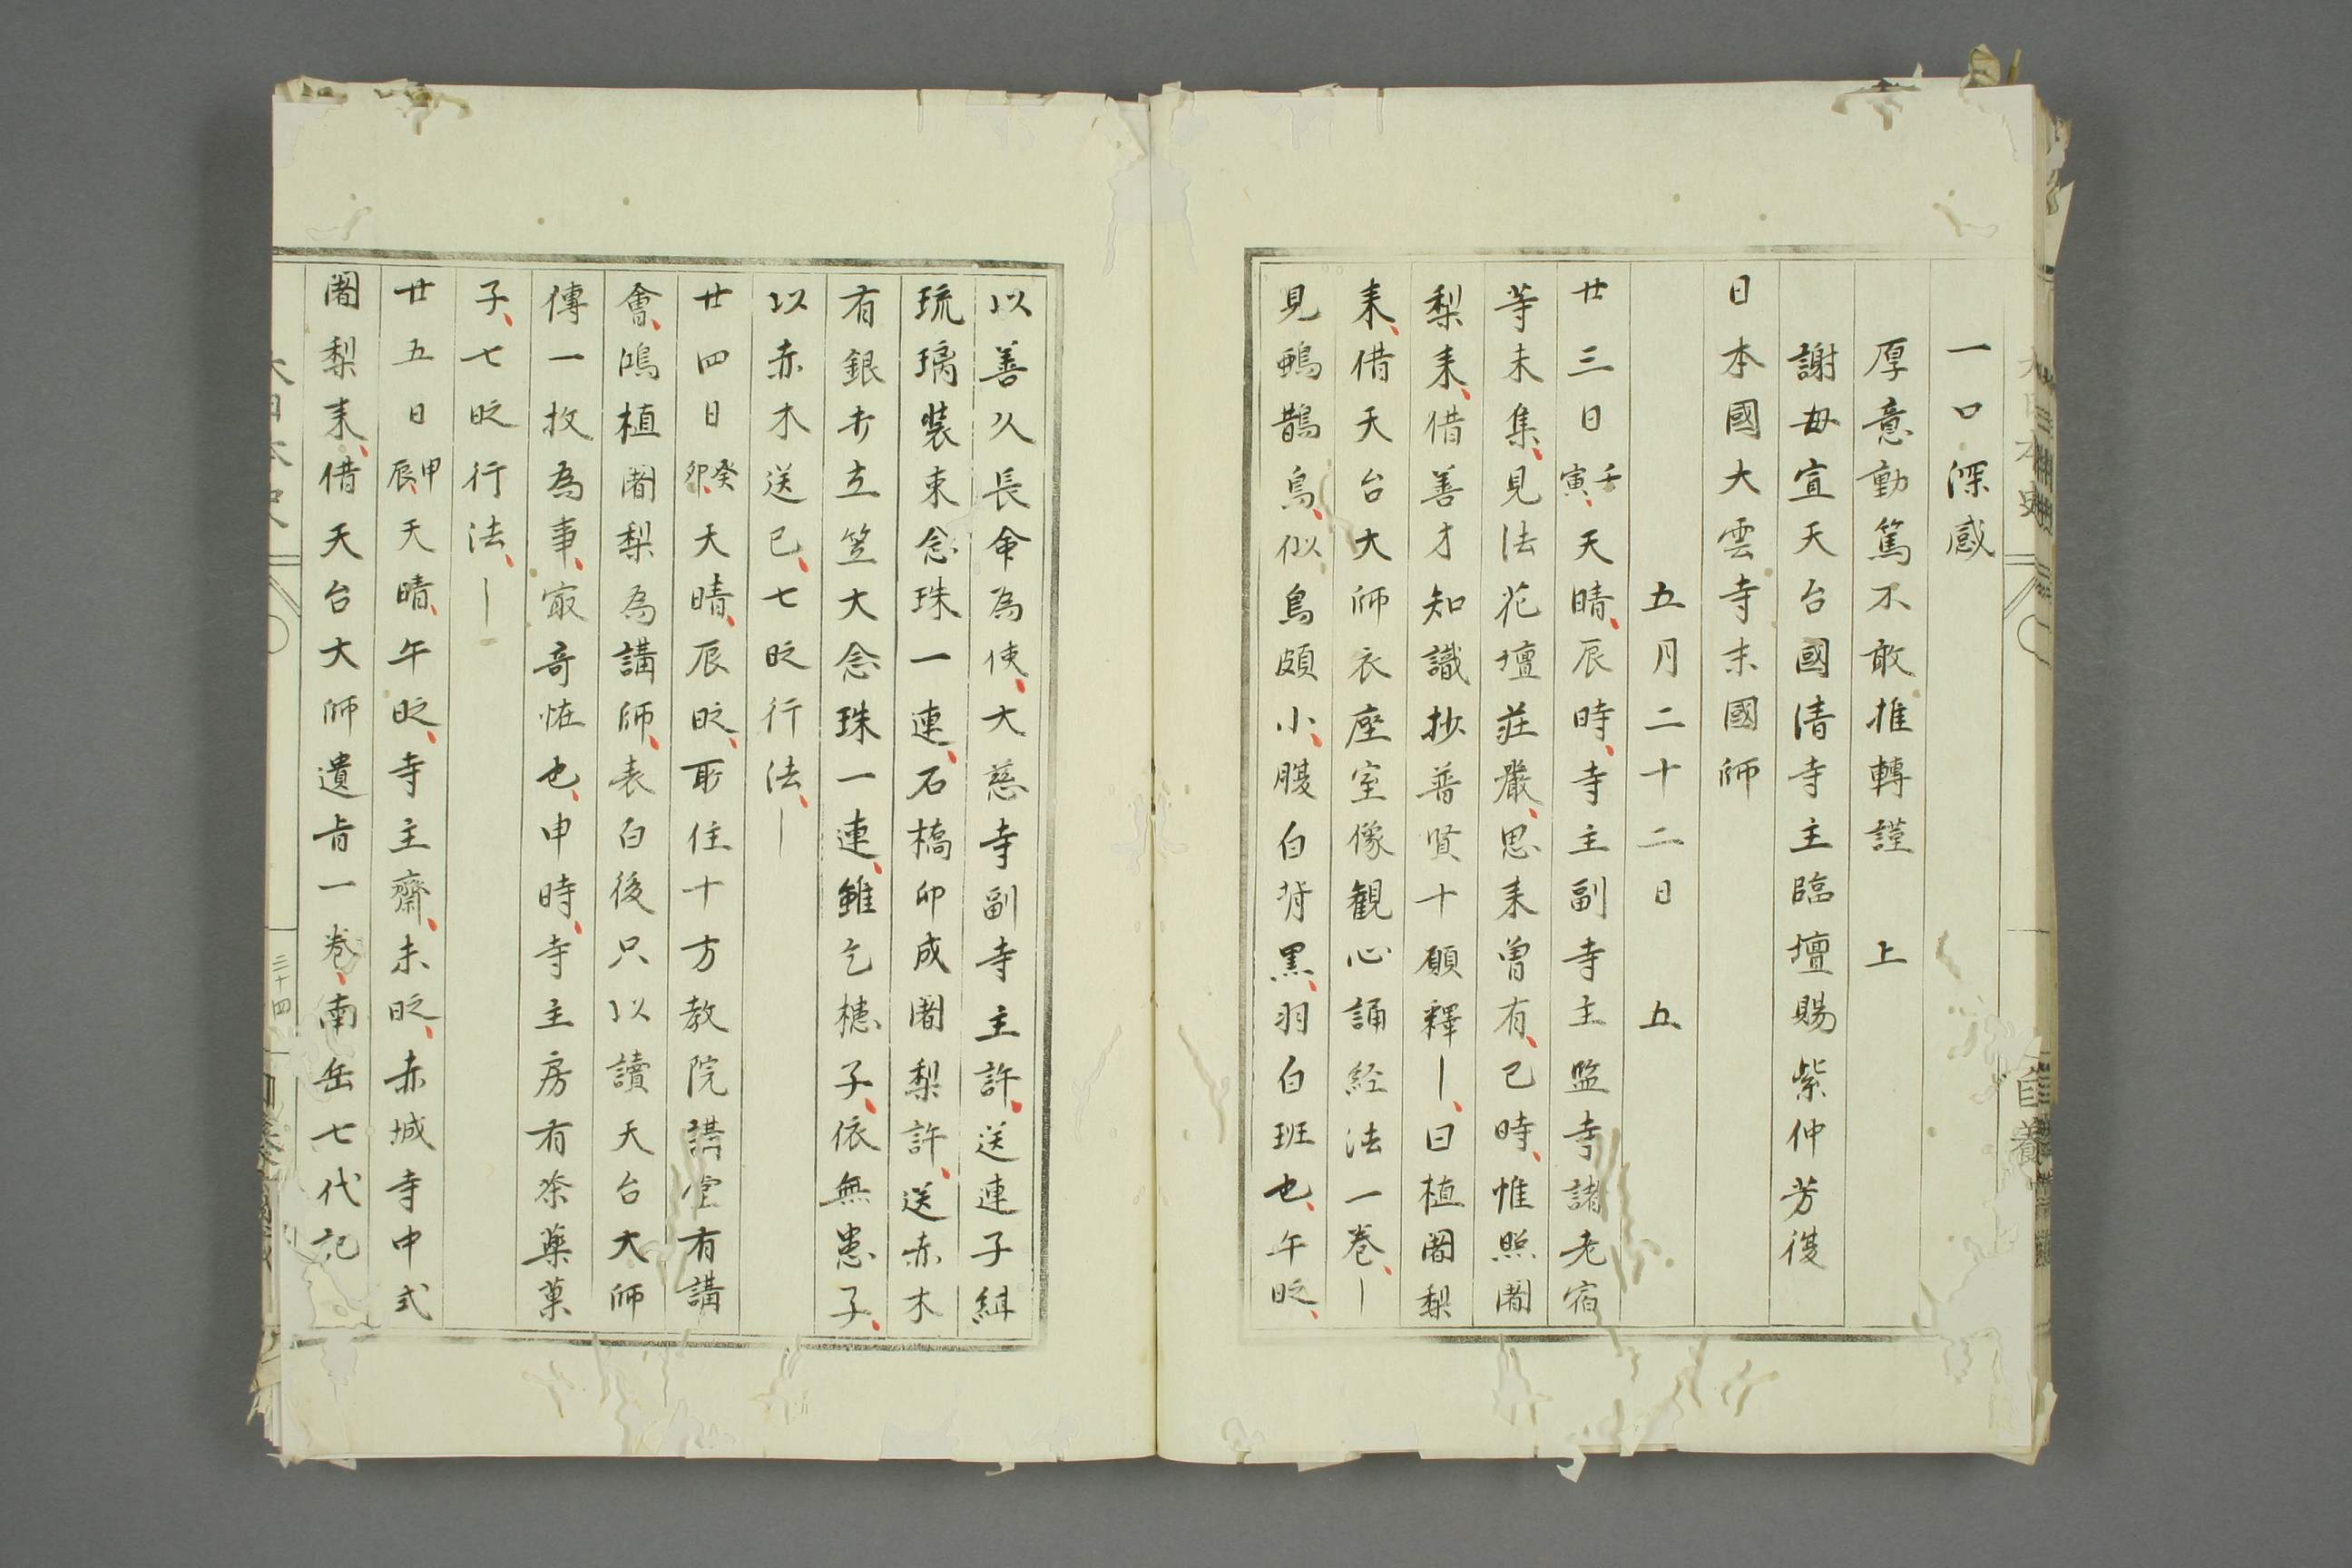 一口深感
厚意勤篤不敢推轉謹　上
謝毎宣天台國清寺主臨壇賜紫仲芳復
日本國大雲寺末國師
五月二十二日　五
廿三日壬寅、天晴、辰時、寺主副寺主監寺諸老宿
等未集、見法花壇莊嚴、思未曾有、已時、惟照闍
梨来、借善才知識抄普賢十願釋｜、日植闍梨
来、借天台大師衣座室像観心誦経法一巻、｜
見鵐鵲鳥、似鳥頗小、腹白背黒、羽白班也、午眨、
以善久長命為使、大慈寺副寺主許、送連子緝
琉璃装束念珠一連、石橋卯成闍梨許、送赤木
有銀方立笠大念珠一連、雖乞槵子、依無患子、
以赤木送已、七眨行法、｜
廿四日癸卯、天晴、辰眨、取住十方教院講堂有講
會、鴻植闍梨為講師、表白後只以讀天台大師
傳一枚為事、㝡奇恠也、申時、寺主房有茶藥菓
子、七眨行法、｜
廿五日甲辰、天晴、午眨、寺主齋、未眨、赤城寺中式
闍梨来、借天台大師遺旨一巻、南岳七代記
三十四